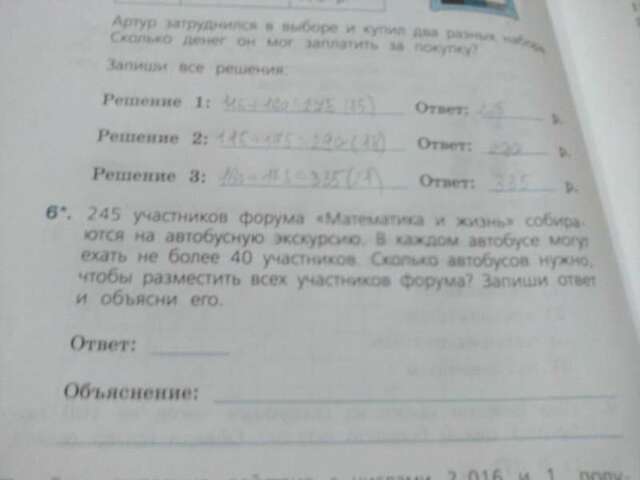 Артур затруднился в выборе и купил два разных набора.
Сколько денег он мог заплатить за покупку?
Запиши все решения.
Решение 1: Ответ: р.
Решение 2: Ответ: р.
Решение 3: Ответ: 335 р.
6*. 245 участников форума «Математика и жизнь» собира-
ются на автобусную экскурсию. В каждом автобусе могут
ехать не более 40 участников. Сколько автобусов нужно,
чтобы разместить всех участников форума? Запиши ответ
и объясни его.
Ответ:
Объяснение:
с числами 2 016 и 1